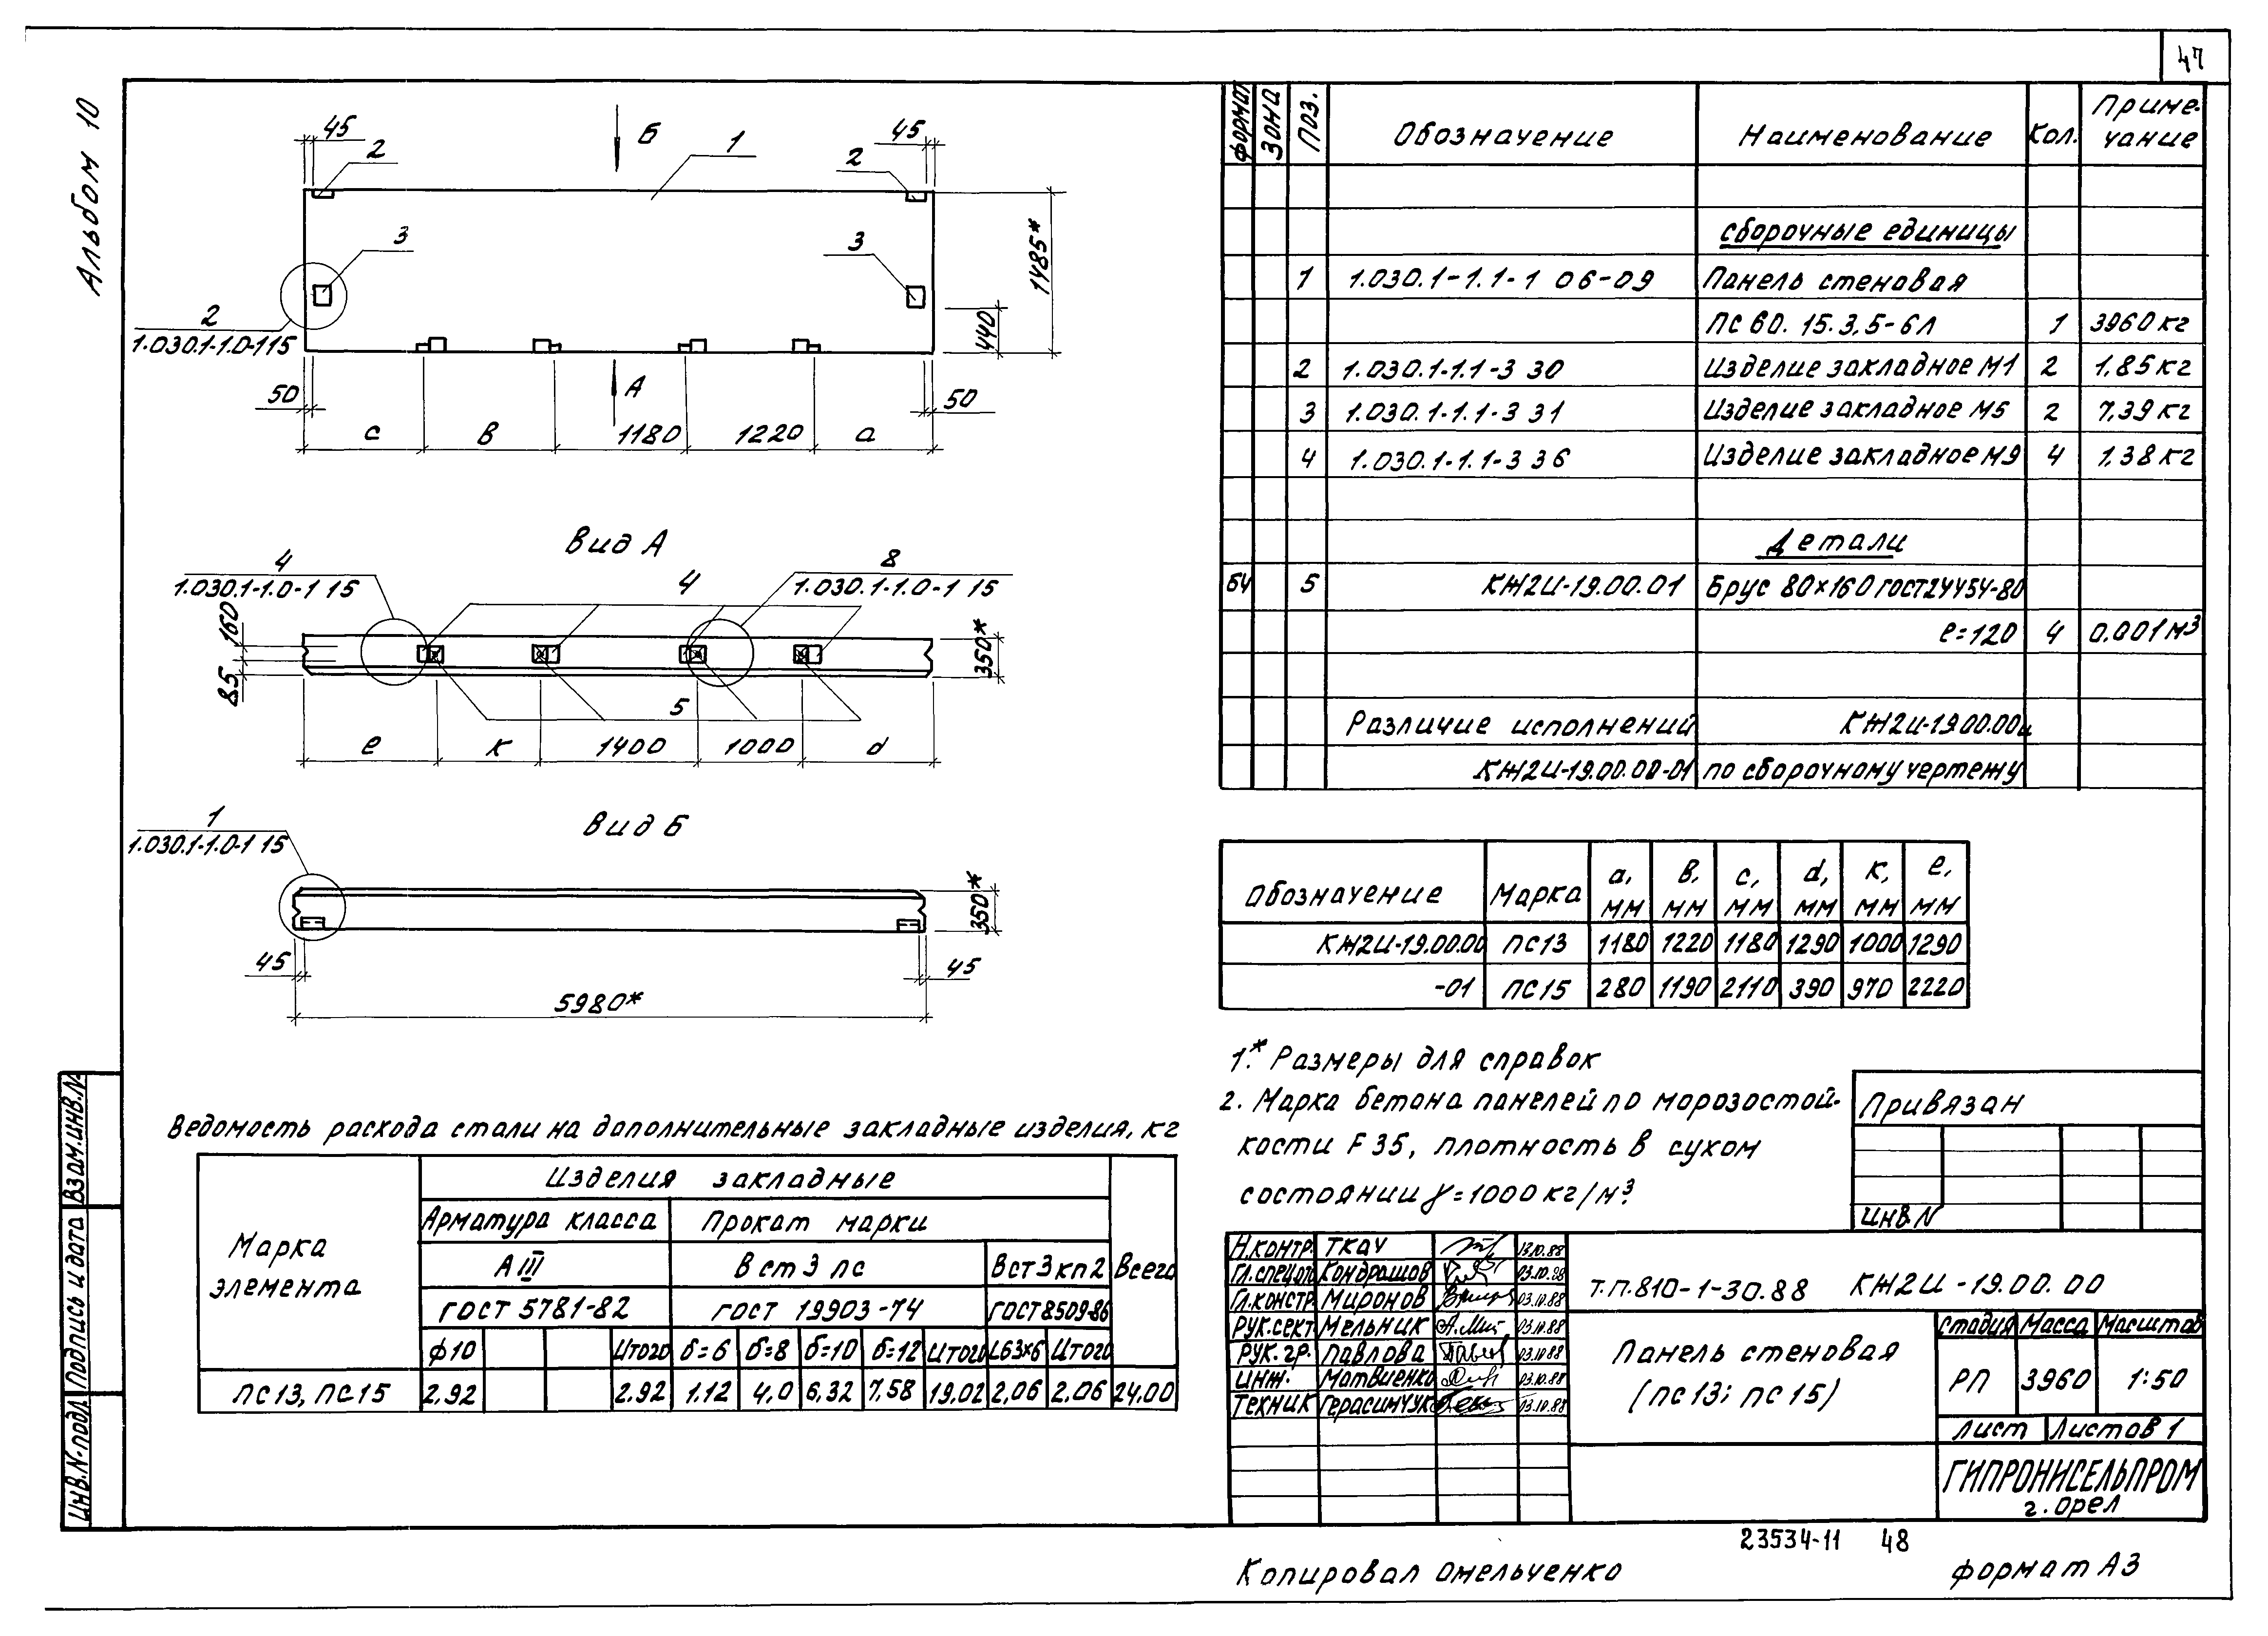 47
Альбом 10
45
2
Б
1
2
45
3
3
1485*
440
2
1.030.1-1.0-115
50
А
50
с
в
1180
1220
а
Вид А
4
1.030.1-1.0-1 15
4
8
1.030.1-1.0-1 15
160
85
350*
5
е
к
1400
1000
d
Вид Б
1
1.030.1-1.0-1 15
350*
45
45
5980*
Формат Зона Поз. Обозначение Наименование Кол. Приме-
чание
сборочные единицы
1 1.030.1-1.1-1 06-09 Панель стеновая
ПС 60.15.3,5-6л 1 3960 кг
2 1.030.1-1.1-3 30 Изделие закладное М1 2 1,85 кг
3 1.030.1-1.1-3 31 Изделие закладное М5 2 7,39 кг
4 1.030.1-1.1-3 36 Изделие закладное М9 4 1,38 кг
Детали
БЧ 5 КЖ2И-19.00.01 Брус 80×160 ГОСТ 24454-80
е=120 4 0,001 м³
Различие исполнений КЖ2И-19.00.00 и
КЖ2И-19.00.00-01 по сборочному чертежу
Обозначение Марка а, мм в, мм с, мм d, мм к, мм е, мм
КЖ2И-19.00.00 ПС13 1180 1220 1180 1290 1000 1290
-01 ПС15 280 1190 2110 390 970 2220
1.* Размеры для справок
2. Марка бетона панелей по морозостой-
кости F35, плотность в сухом
состоянии γ=1000 кг/м³.
Привязан
ИНВ.N
Ведомость расхода стали на дополнительные закладные изделия, кг
Марка элемента Изделия закладные Всего
Арматура класса Прокат марки
А III Вст 3 пс Вст 3 кп 2
ГОСТ 5781-82 ГОСТ 19903-74 ГОСТ 8509-86
ф10 Итого б=6 б=8 б=10 б=12 Итого L63×6 Итого
ПС13, ПС15 2.92 2.92 1.12 4,0 6,32 7,58 19,02 2,06 2,06 24,00
Н.контр. Ткач 13.10.88
Гл.спецот. Кондрашов 03.10.88
Гл.констр. Миронов 03.10.88
Рук.сект. Мельник 03.10.88
Рук. гр. Павлова 03.10.88
Инж. Матвиенко 03.10.88
Техник Герасимчук 03.10.88
Т.П.810-1-30.88 КЖ2И-19.00.00
Панель стеновая
(ПС13; ПС15)
Стадия Масса Масштаб
РП 3960 1:50
Лист Листов 1
ГИПРОНИСЕЛЬПРОМ
г. Орел
Взам.инв.N
Подпись и дата
Инв.N подл.
23534-11 48
Копировал Омельченко
формат А3